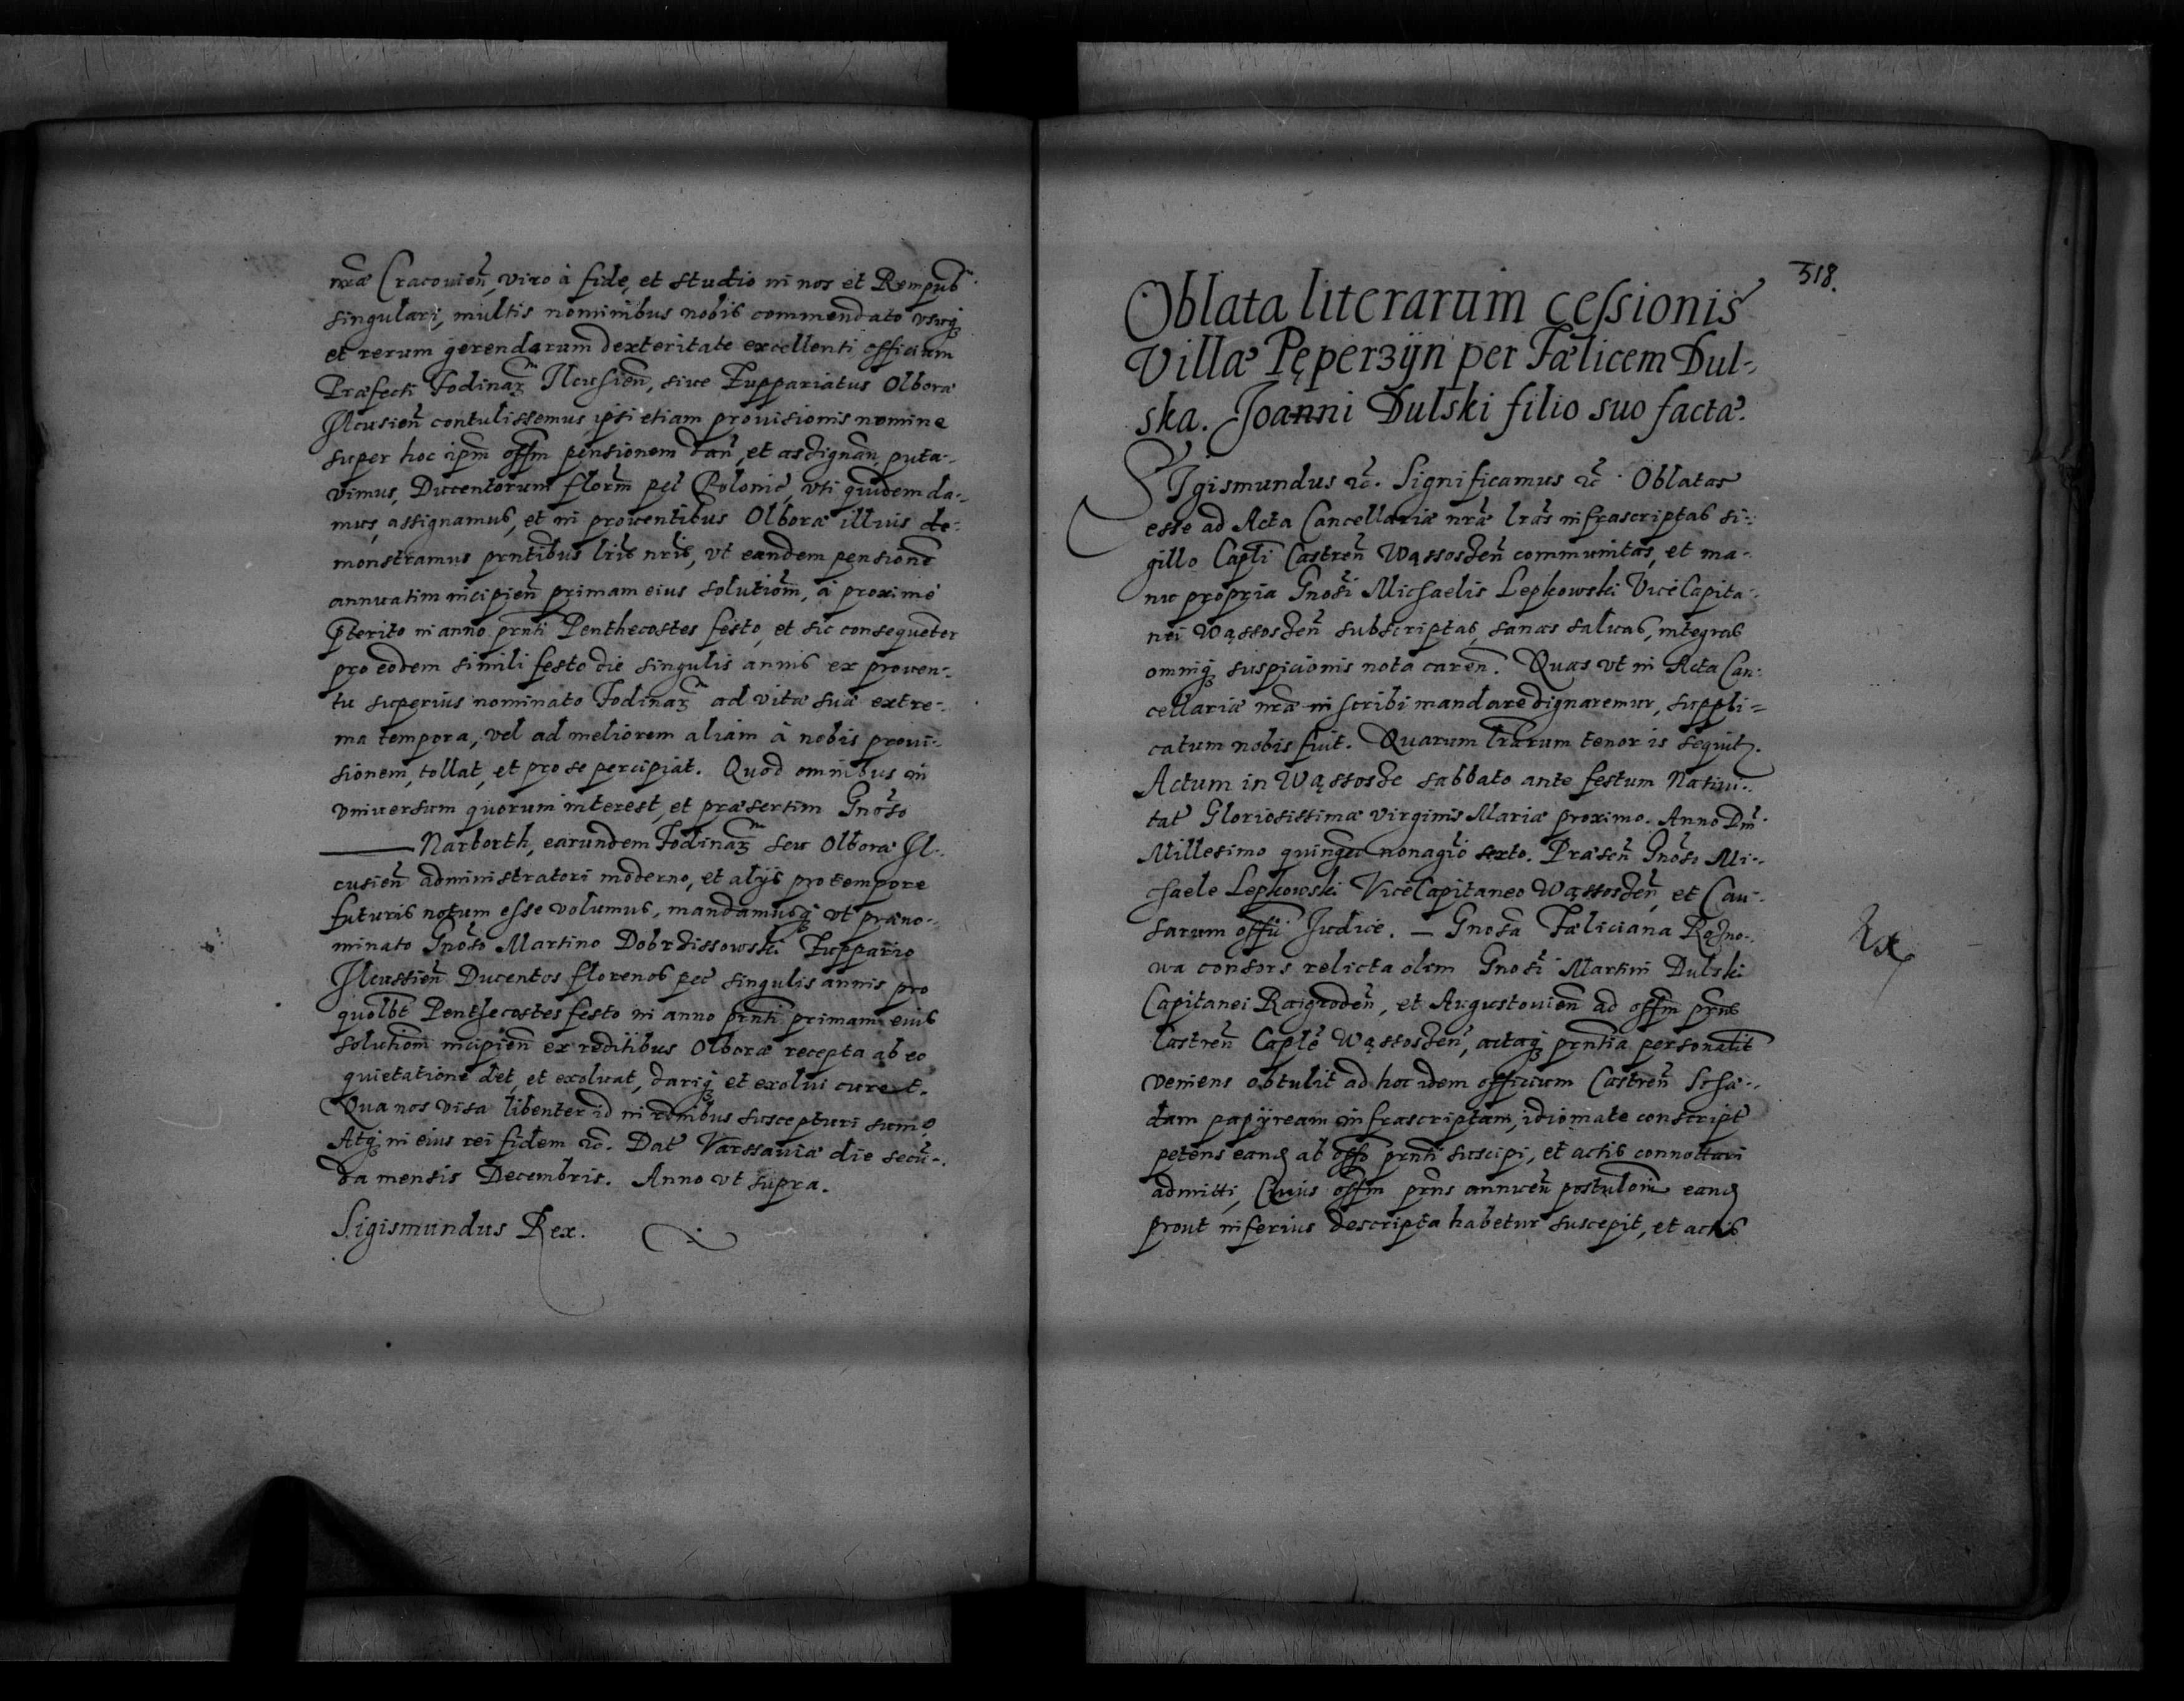 nrae Cracovien, viro à fide, et studio in nos et Rempub
singulari, multis nominibus nobis commendato usuq
et rerum gerendarum dexteritate excellenti officium
Praefecti Fodinar Ilcusien, sive Zuppariatus Olborae
Ilcusien contulissemus, ipsi etiam provisionis nomine
super hoc ipm offm pensionem dan, et assignan, puta-
vimus, Ducentorum florm pec Polonic, vti quidem da-
mus, assignamus, et in proventibus Olborae illius de-
monstramus prntibus lris nris, vt eandem pensione
annuatim incipien primam eius solutiom, à proximè
pterito in anno prnti Penthecostes festo, et sic consequeter
pro eodem simili festo die singulis annis ex proven-
tu superius nominato Fodinar ad vitae suae extre-
ma tempora, vel ad meliorem aliam à nobis provi-
sionem, tollat, et pro se percipiat. Quod omnibus in
vniversum quorum interest, et praesertim Gnoso
——— Narborth, earundem Fodinar seu Olborae Il-
cusien administratori moderno, et alijs pro tempore
futuris notum esse volumus, mandamusq vt praeno-
minato Gnoso Martino Dobrdissowski Zuppario
Ilcussien Ducentos florenos pec singulis annis pro
quolbt Penthecostes festo in anno prnti primam eius
solutiom incipien ex reditibus Olborae recepta ab eo
quietatione det, et exolvat, dariq et exolvi curet.
Qua nos visa libenter id in rõnibus suscepturi sumo
Atq in eius rei fidem etc. Dat Varssaviae die secu-
da mensis Decembris. Anno vt supra.
Sigismundus Rex.
318.
Oblata literarum cessionis
Villae Pęperzÿn per Faelicem Dul-
ska. Joanni Dulski filio suo factae.
Sigismundus etc. Significamus etc. Oblatas
esse ad Acta Cancellariae nrae lras infrascriptas si-
gillo Capli Castren Wąssosden communitas, et ma-
nu propria Gnosi Michaelis Lepkowski ViceCapita-
nei Wąssosden subscriptas, sanas salvas, integras
omniq suspicionis nota caren. Quas vt in Acta Can-
cellariae nrae inscribi mandare dignaremur, suppli-
catum nobis fuit. Quarum lrarum tenor is sequit.
Actum in Wąssosde sabbato ante festum Nativi-
tat Gloriosissimae virginis Mariae proximo. Anno Dni
Millesimo quingen nonagio sexto. Praesen Gnoso Mi-
chaele Lepkowski ViceCapitaneo Wąssosden, et Cau-
sarum offii Judice. — Gnosa Faeliciana Rożno-
wa consors relicta olim Gnosi Martini Dulski
Capitanei Raigroden, et Augustovien ad offm prns
Castren Caple Wąssosden, actaq prntia personalit
veniens obtulit ad hoc idem officium Castren Scha-
dam papÿream infrascriptam, idiomate conscript
petens eand ab offo prnti suscipi, et actis connottari
admitti, Cuius offm prns annuen postulom eand
prout inferius descripta habetur suscepit, et actis